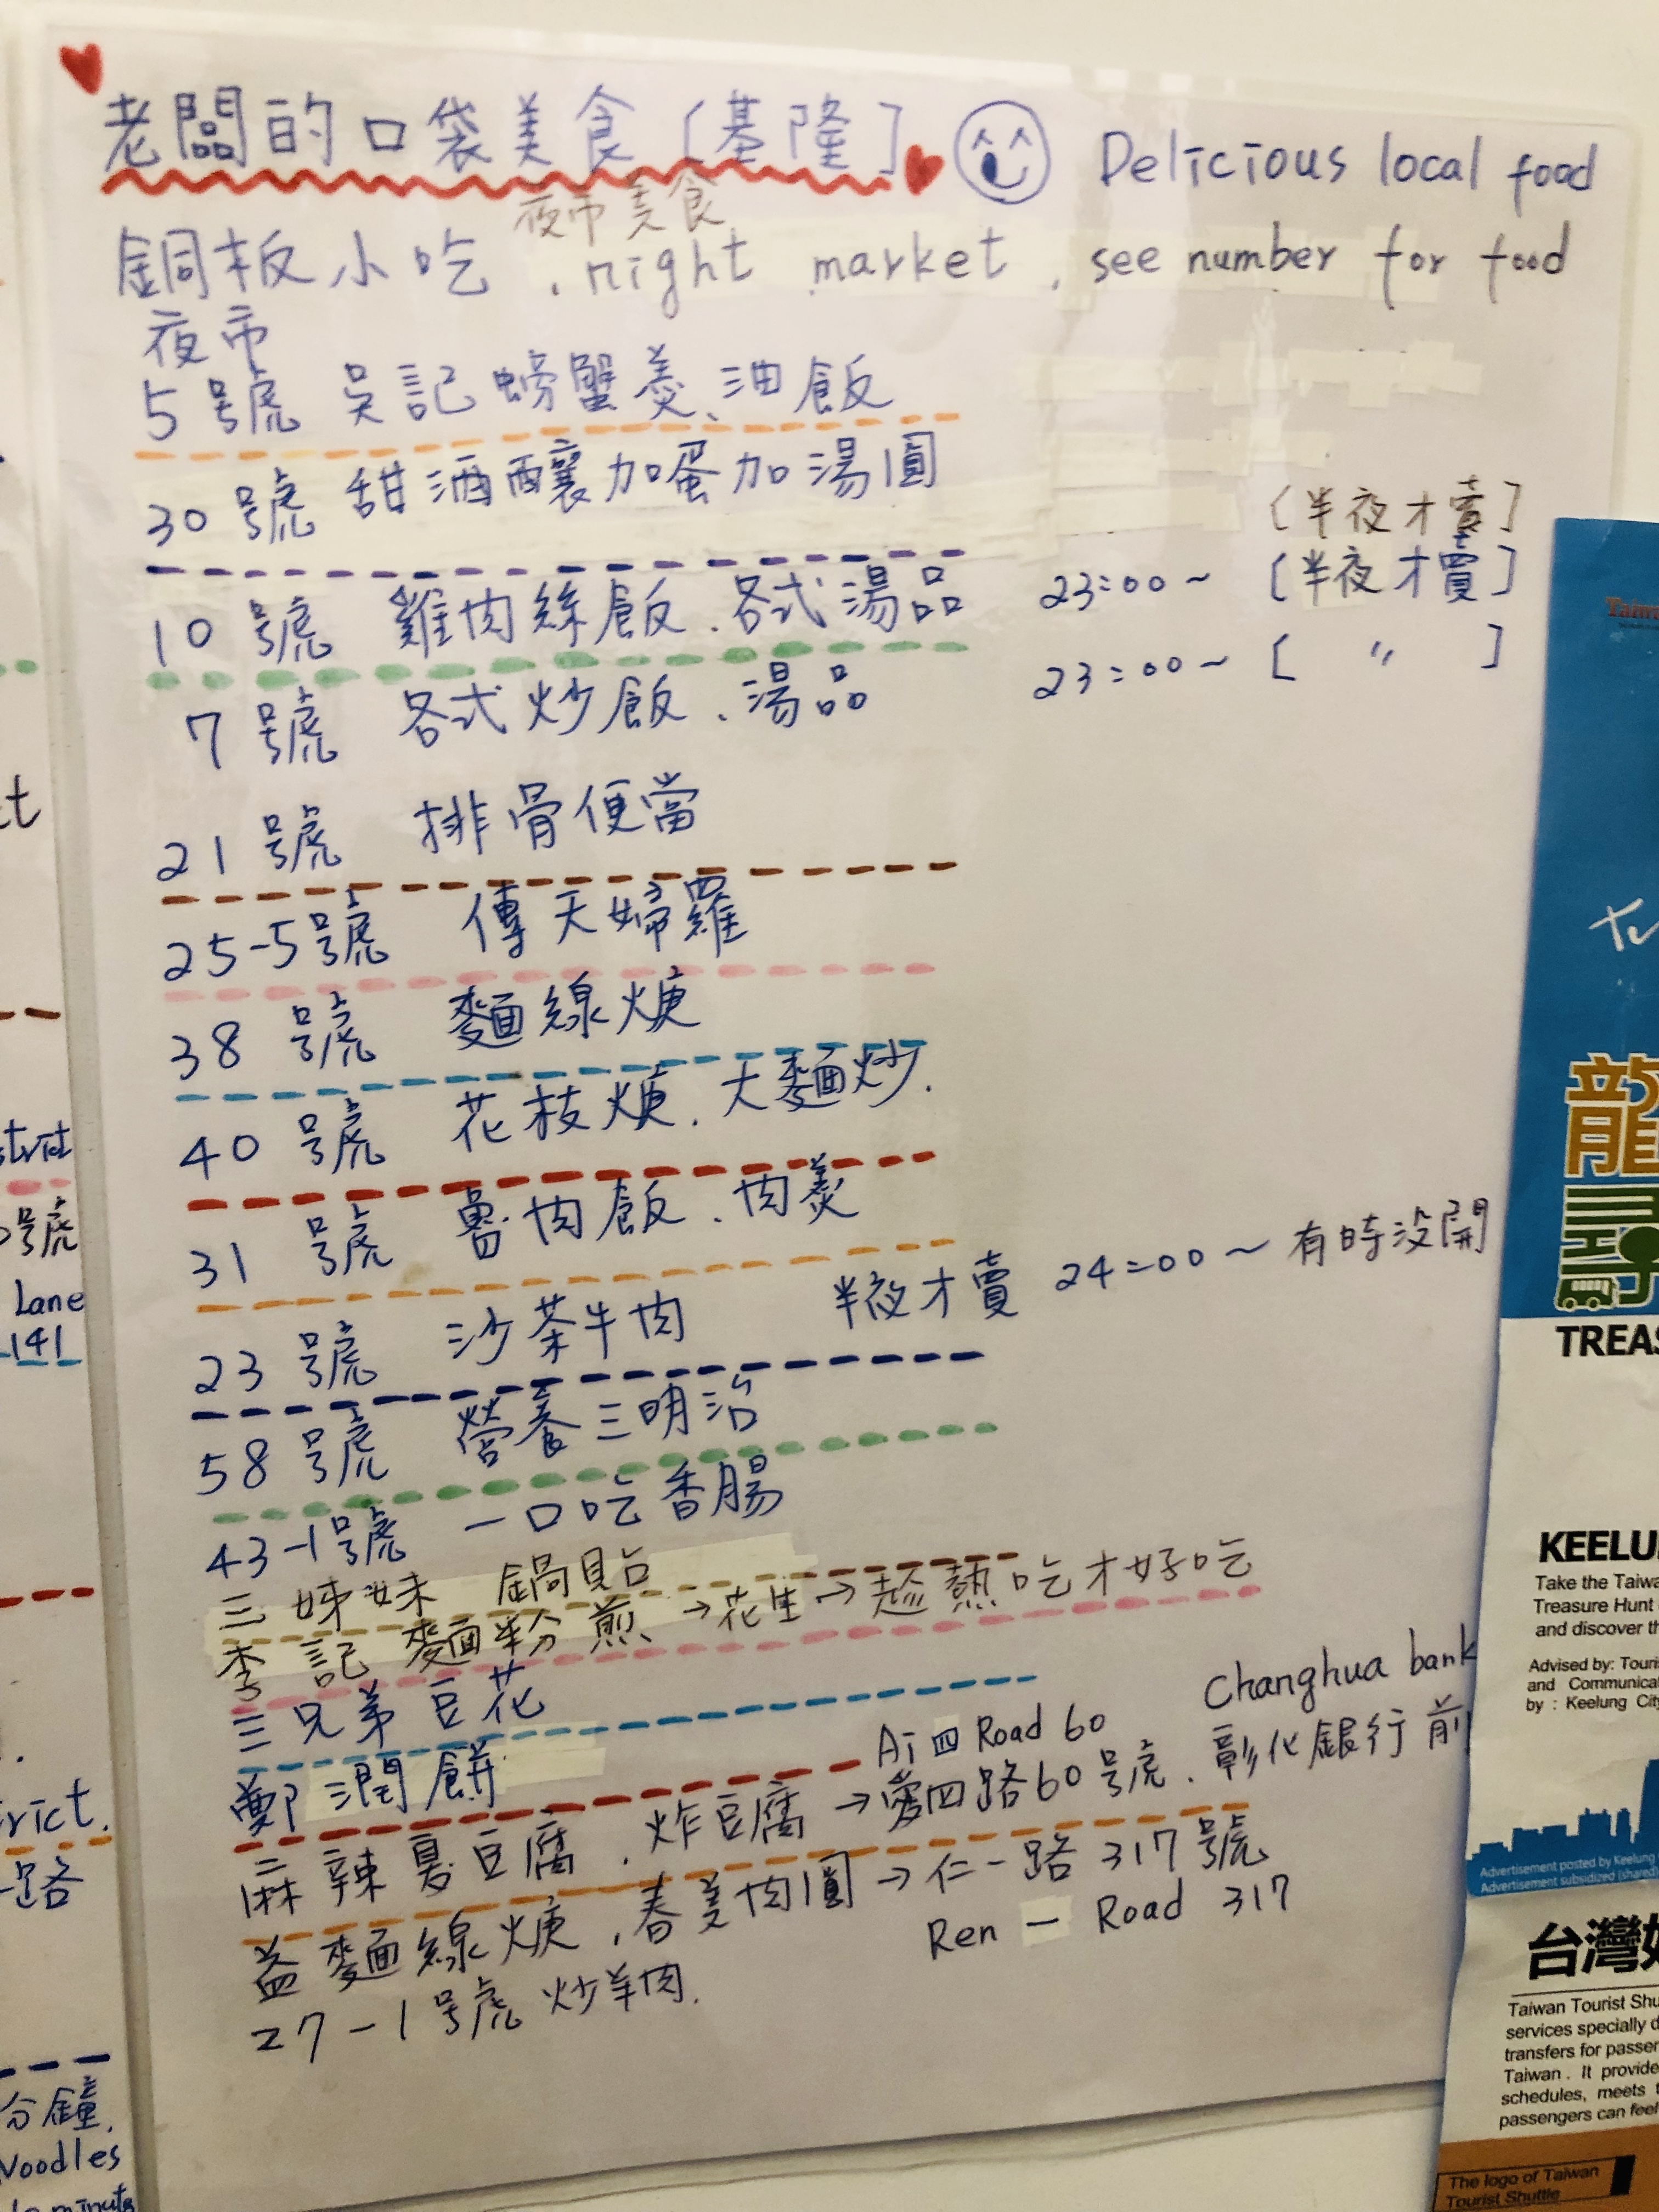 老闆的口袋美食〔基隆〕 Delicious local food
夜市美食
銅板小吃 . night market , see number for food
夜市
5號 吳記螃蟹羹、油飯
30號 甜酒釀加蛋加湯圓 〔半夜才賣〕
10號 雞肉絲飯.各式湯品 23:00~ 〔半夜才賣〕
7號 各式炒飯.湯品 23:00~ [ 〃 ]
21號 排骨便當
25-5號 傳天婦羅
38號 麵線焿
40號 花枝焿.大麵炒.
31號 魯肉飯.肉羹
23號 沙茶牛肉 半夜才賣 24:00~有時沒開
58號 營養三明治
43-1號 一口吃香腸
三姊妹 鍋貼
李記 麵粉煎→花生→趁熱吃才好吃
三兄弟豆花
鄭潤餅
Ai 四 Road 60 Changhua bank
麻辣臭豆腐.炸豆腐→愛四路60號.彰化銀行前
益麵線焿.春美肉圓→仁一路317號
Ren 一 Road 317
27-1號 炒羊肉.
Lane
141
路
分鐘.
Noodles
龍
TREAS
KEELU
Take the Taiwa
Treasure Hunt
and discover th
Advised by: Touri
and Communica
by : Keelung City
Advertisement posted by Keelung
Advertisement subsidized (shared)
台灣好
Taiwan Tourist Shu
services specially d
transfers for passer
Taiwan. It provide
schedules, meets t
passengers can feel
The logo of Taiwan
Tourist Shuttle